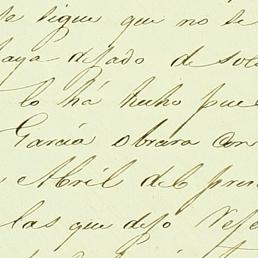 se sigue que no se
haya dejado de
lo há hecho pue
García obrara con
Abril del pres
las que dejo refe